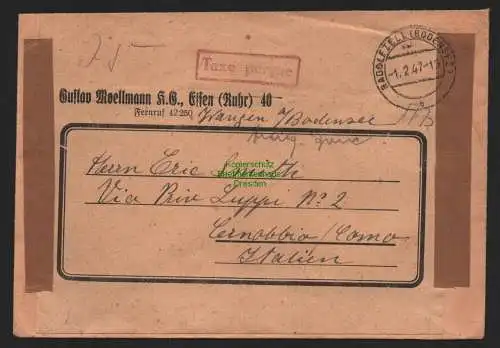 Taxe perçue
RADOLFZELL (BODENSEE)
-1.2.47-1
b
Gustav Moellmann K.G., Essen (Ruhr) 40
Fernruf 42250
Wangen / Bodensee
Kopierschutz
Dresden
Herrn Eric
Via Priv Luppi No 2
Cernobbio / Como
Italien